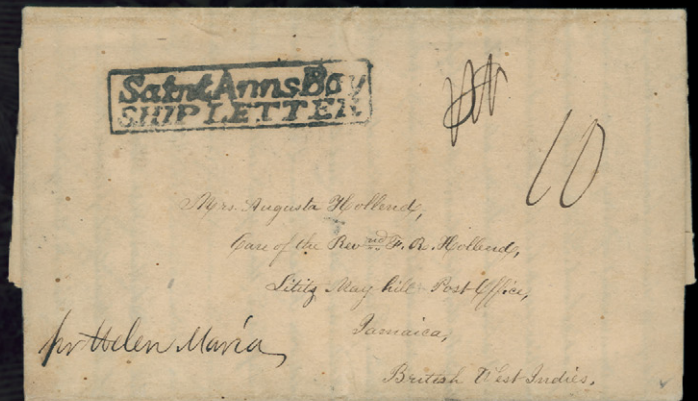 Saint Anns Bay
SHIP LETTER
10
Mrs. Augusta Hollend,
Care of the Revnd. F. R. Hollend,
Lititz May hill Post Office,
Jamaica,
British West Indies.
pr Helen Maria